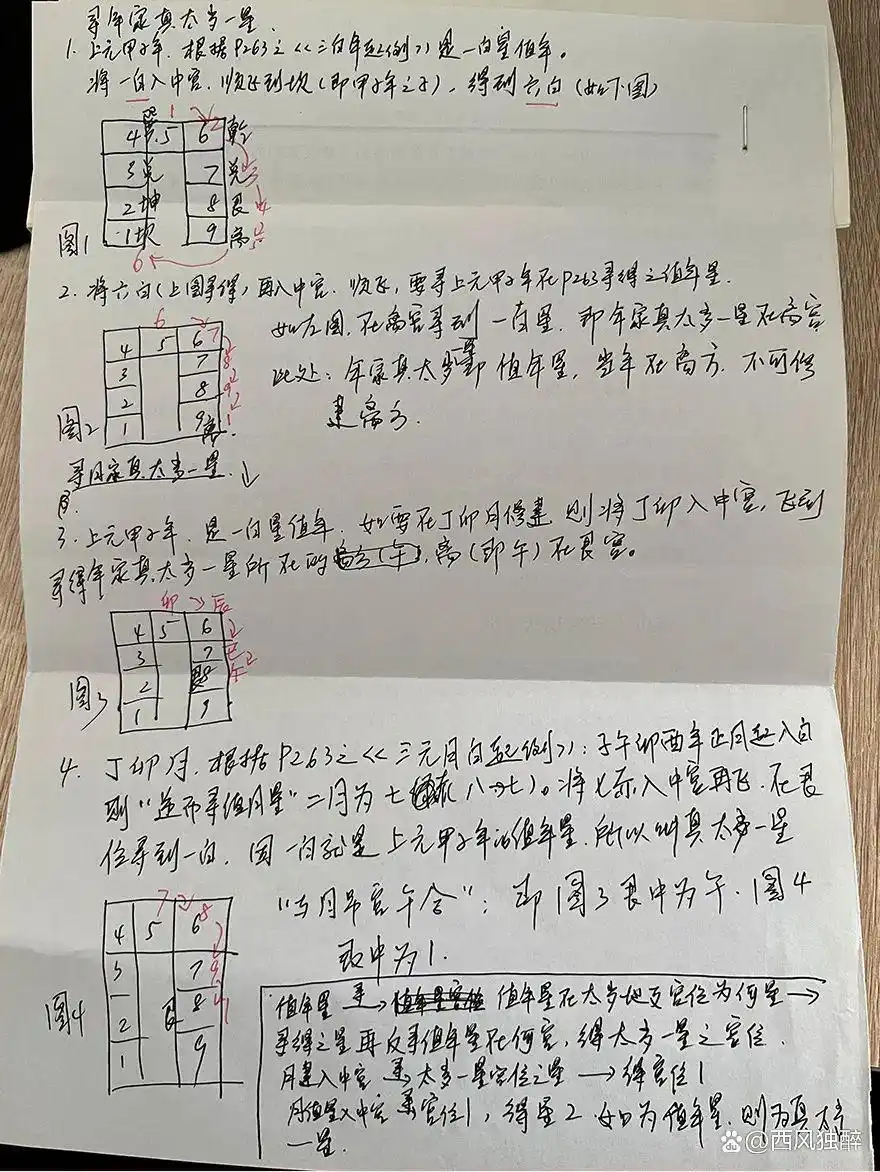 寻年家真太岁一星.
1. 上元甲子年. 根据P263之《三白年起例》是一白星值年。
将一白入中宫. 顺飞到坎(即甲子年之子), 得到六白(如下图)
1
4 巽 5 6 乾 2
3 兑 7 兑 3
2 坤 8 艮 4
1 坎 9 离 5
图1
6
2. 将六白(上图寻得)再入中宫. 顺飞, 要寻上元甲子年在P263寻得之值年星.
6
4 5 6 7
3 7 8
2 8 9
1 9 离 1
图2
如左图. 在离宫寻到一白星. 即年家真太岁一星在离宫
此处: 年家真太岁星即值年星, 当年在离方. 不可修
建离方.
寻月家真太岁一星. ↓
3. 上元甲子年. 是一白星值年. 如要在丁卯月修建 则将丁卯入中宫, 飞到
寻得年家真太岁一星所在的离(即午)在艮宫。
卯 → 辰
4 5 6
3 7 巳
2 8 艮 午
1 9
图3
4. 丁卯月. 根据P263之《三元月白起例》: 子午卯酉年正月起八白
则“逆而寻值月星”二月为七赤(八→七)。将七赤入中宫再飞. 在艮
位寻到一白. 因一白就是上元甲子年的值年星. 所以叫真太岁一星
7 8
4 5 6
3 7 9
2 艮 8 1
1 9
图4
“与月吊宫午合”: 即图3艮中为午. 图4
艮中为1.
值年星 寻→ 值年星在太岁地支宫位为何星→
寻得之星再反寻值年星在何宫, 得太岁一星之宫位.
月建入中宫 寻 太岁一星宫位之星→得宫位1
月值星入中宫 寻宫位1, 得星2. 如为值年星. 则为真太岁
一星.
百度 @西风独醉